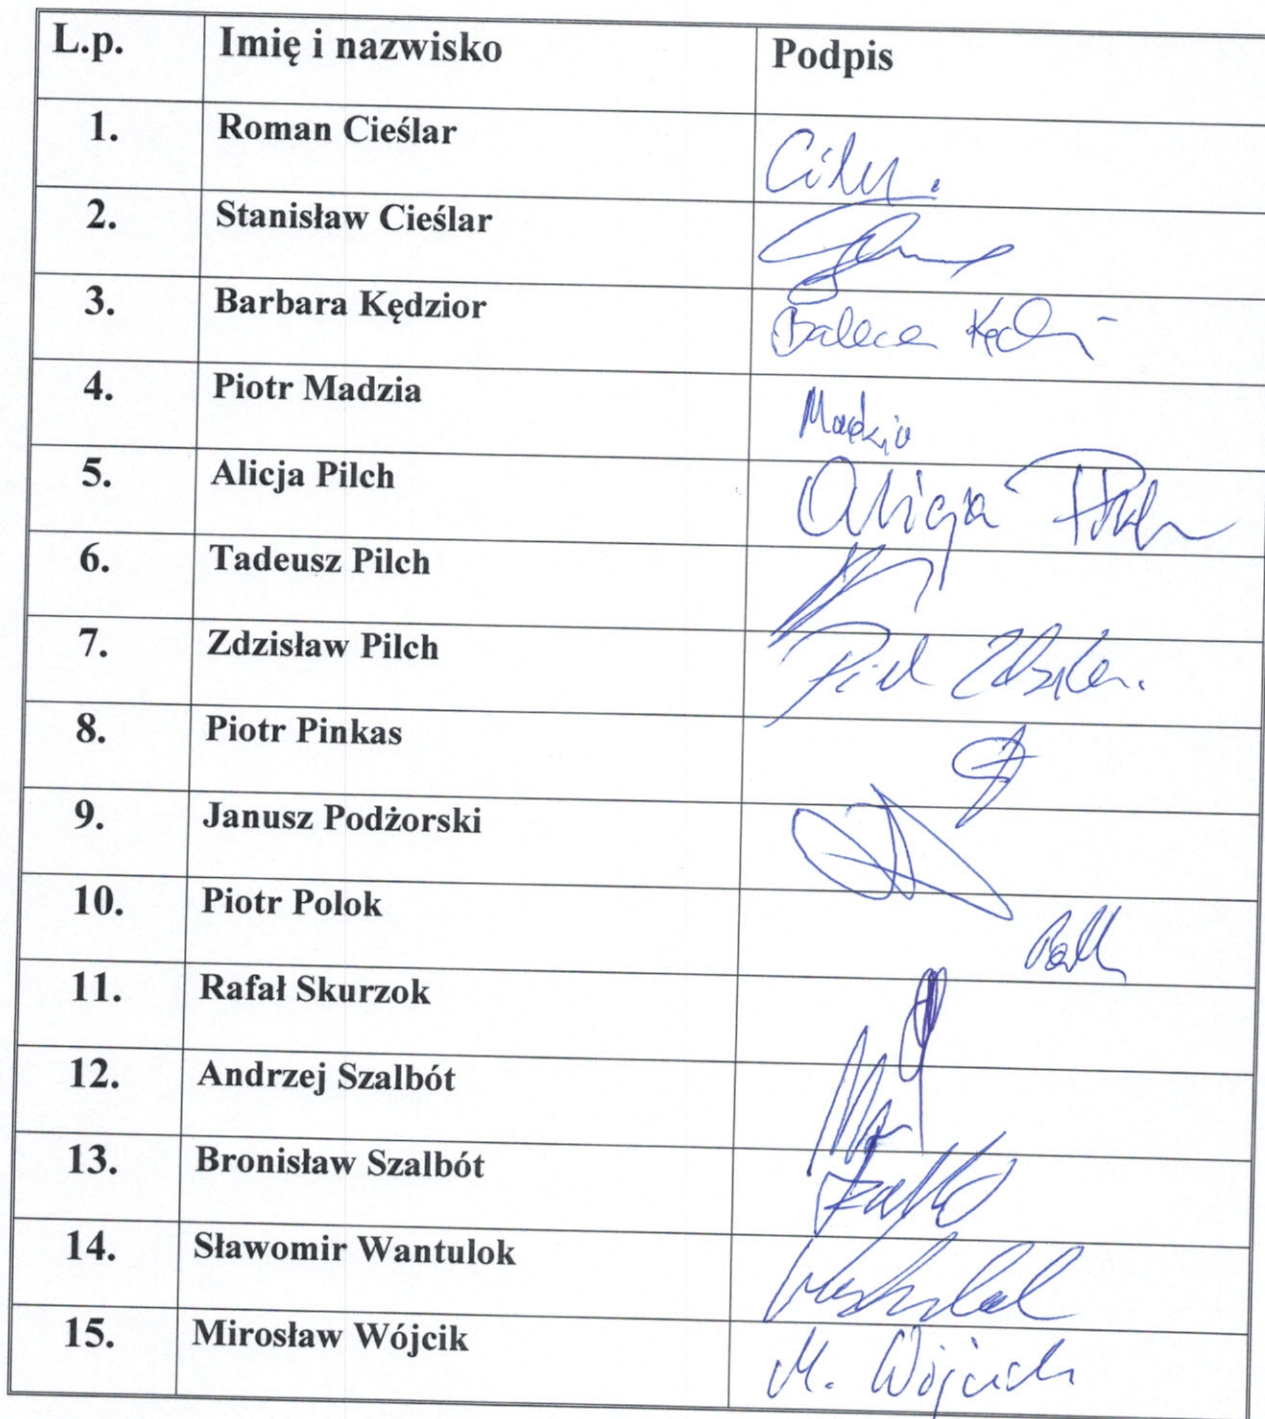 L.p. Imię i nazwisko Podpis
1. Roman Cieślar
2. Stanisław Cieślar
3. Barbara Kędzior
4. Piotr Madzia Madzia
5. Alicja Pilch Alicja Pilch
6. Tadeusz Pilch
7. Zdzisław Pilch
8. Piotr Pinkas
9. Janusz Podżorski
10. Piotr Polok
11. Rafał Skurzok
12. Andrzej Szalbót
13. Bronisław Szalbót
14. Sławomir Wantulok
15. Mirosław Wójcik M. Wójcik